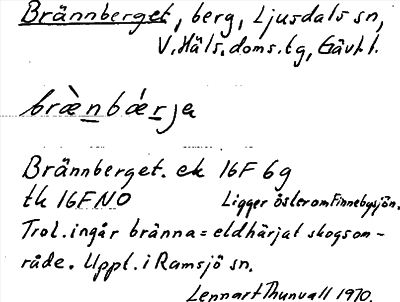 Brännberget, berg, Ljusdals sn,
V. Häls. doms. tg, Gävl. l.
brànbérja
Brännberget. ek 16F 6g
tk 16F NO Ligger öster om Finnebysjön.
Trol. ingår bränna = eldhärjat skogsom-
råde. Uppt. i Ramsjö sn.
Lennart Thunvall 1970.